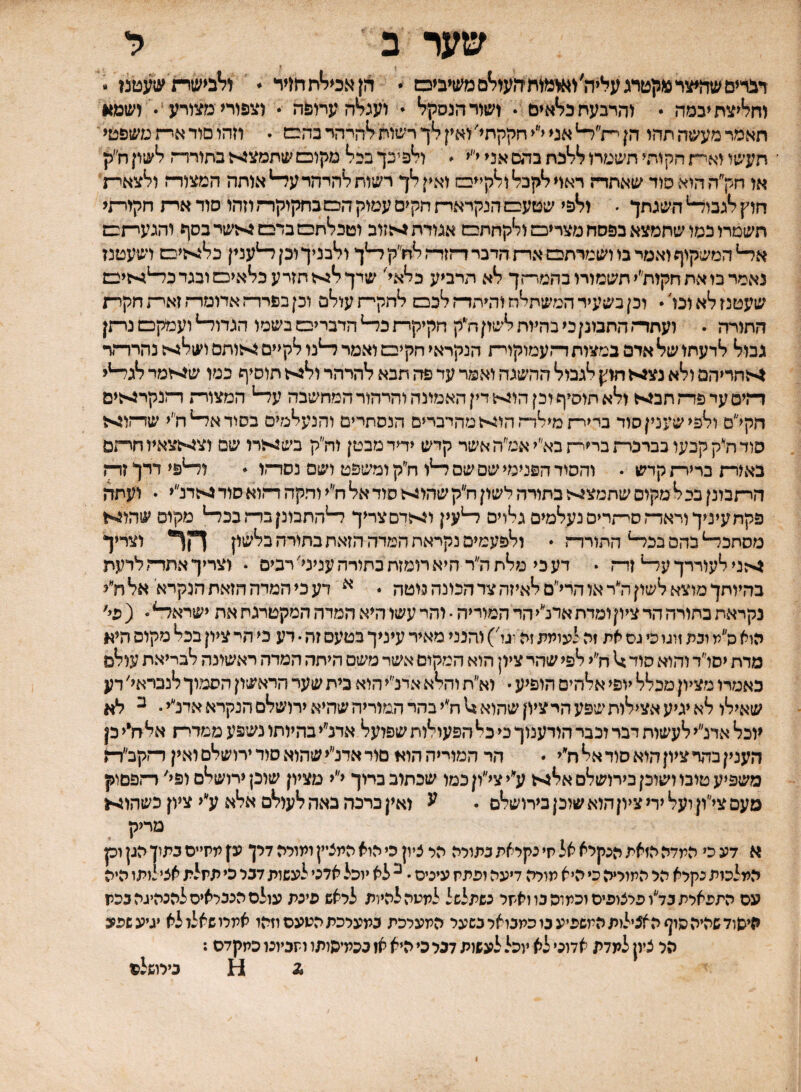 שער ב ל
דברים שהיצר מקטרג עליה' ואומות העולם משיבים • הן אכילת חזיר • ולבישת שעטנז •
וחליצת יבמה • והרבעת כלאים • ושור הנסקל • ועגלה ערופה • וצפורי מצורע • ושמא
תאמר מעשה תהו הן ת"ל אני י"י חקקתי' ואין לך רשות להרהר בהם • וזהו סוד את משפטי
תעשו ואת חקותי תשמרו ללכת בהם אני י"י • ולפיכך בכל מקום שתמצא בתורה לשון ח"ק
או חק"ה הוא סוד שאתה ראוי לקבל ולקיים ואין לך רשות להרהר על אותה המצוה ולצאת
חוץ לגבול השגתך • ולפי שטעם הנקראת חקים עמוק הם בחקוקה וזהו סוד את חקותי
תשמרו כמו שתמצא בפסח מצרים ולקחתם אגודת אזוב וטבלתם בדם אשר בסף והגעתם
אל המשקוף ואמר בו ושמרתם את הדבר הזה לח"ק לך ולבניך וכן לענין כלאים ושעטנז
נאמר בו את חקות"י תשמורו בהמתך לא תרביע כלאי' שדך לא תזרע כלאים ובגד כלאים
שעטנז לא וכו' • וכן בשעיר המשתלח והיתה לכם לחקת עולם וכן בפרה אדומה זאת חקת
התורה • ועתה התבונן כי בהיות לשון ח"ק חקיקת כל הדברים בשמו הגדול ועמקם נתן
גבול לדעתו של אדם במצות העמוקות הנקראי חקים ואמר לנו לקיים אותם ושלא נהרהר
אחריהם ולא נצא חוץ לגבול ההשגה ואמר עד פה תבא להרהר ולא תוסיף כמו שאמר לגלי
הים עד פה תבא ולא תוסיף וכן הוא דין האמונה והרהור המחשבה על המצות הנקראים
חקי"ם ולפי שענין סוד ברית מילה הוא מהדברים הנסתרים והנעלמים בסוד אל ח"י שהוא
סוד ח"ק קבעו בברכת ברית בא"י אמ"ה אשר קדש ידיד מבטן וח"ק בשארו שם וצאצאיו חתם
באות ברית קדש • והסוד הפנימי שם שם לו ח"ק ומשפט ושם נסהו • ולפי דרך זה
התבונן בכל מקום שתמצא בתורה לשון ח"ק שהוא סוד אל ח"י וחקה הוא סוד אדנ"י • ועתה
פקח עיניך וראה סתרים נעלמים גלוים לעין ואדם צריך להתבונן בה בכל מקום שהוא
מסתכל בהם בכל התורה • ולפעמים נקראת המדה הזאת בתורה בלשון הר וצריך
אני לעוררך על זה • דע כי מלת ה"ר היא רומזת בתורה עניני' רבים • וצריך אתה לדעת
בהיותך מוצא לשון ה"ר או הרי"ם לאיזה צד הכונה נוטה • א דע כי המדה הזאת הנקרא' אל ח"י
נקראת בתורה הר ציון ומדת אדנ"י הר המוריה • והר עשו היא המדה המקטרגת את ישראל • (פי'
הוא ס"מ ובת זוגו כי גם את זה לעומת זה וגו') והנני מאיר עיניך בטעם זה • דע כי הר ציון בכל מקום היא
מדת יסו"ד והוא סוד אל ח"י לפי שהר ציון הוא המקום אשר משם היתה המדה ראשונה לבריאת עולם
כאמרו מציון מכלל יופי אלהים הופיע • וא"ת והלא אדנ"י הוא בית שער הראשון הסמוך לנבראי' דע
שאילו לא יגיע אצילות שפע הר ציון שהוא אל ח"י בהר המוריה שהיא ירושלם הנקרא אדנ"י • ב לא
יוכל אדנ"י לעשות דבר וכבר הודענוך כי כל הפעולות שפועל אדנ"י בהיותו נשפע ממדת אל ח"י כן
הענין בהר ציון הוא סוד אל ח"י • הר המוריה הוא סוד אדנ"י שהוא סוד ירושלם ואין הקב"ה
משפיע טובו ושוכן בירושלם אלא ע"י צי"ון כמו שכתוב ברוך י"י מציון שוכן ירושלם ופי' הפסוק
מעם צי"ון ועל ידי ציון הוא שוכן בירושלם • ע ואין ברכה באה לעולם אלא ע"י ציון כשהוא
מריק
א דע כי המדה הזאת הנקרא אל חי נקראת בתורה הר ציון כי הוא המציין ומורה דרך עץ החיים בתוך הגן וכן
המלכות נקרא הר המוריה כי היא מורה דיעה ופתח עינים • ב לא יוכל אדני לעשות דבר כי תחלת אצילותו היה
עם התפארת בד"ו פרצופים וכמוס בו ואחר נשתלשל למטה להיות לראש פינת עולם הנבראים להנהיגה בכח
היסוד שהיה סוף האצילות המשפיע בו כמבואר בשער המערכת במערכת הטעם וזהו אמרו שאלו לא יגיע שפע
הר ציון למדת אדוני לא יוכל לעשות דבר כי היא אז בכמיסותו וחביונו כמקדם :
2 H בירושלם